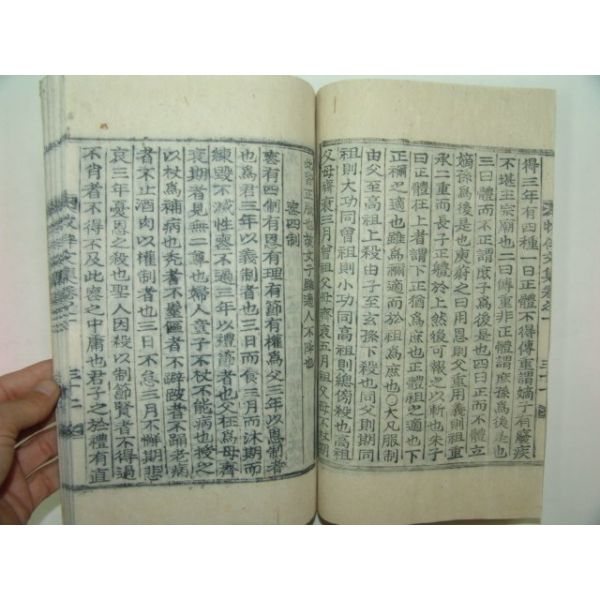 得三年有四種一曰正體不得傳重謂嫡子有廢疾
不堪主宗廟也二曰傳重非正體謂庶孫爲後是也
三曰體而不正謂庶子爲後是也四曰正而不體立
嫡孫爲後是也東府之曰用恩則父重用義則祖重
承二重而長子正軆於上然後可報之以斬也朱子
曰正體在上者謂下正猶爲庶也正體謂祖之適也下
正禰之適也雖爲禰適而於祖爲庶也○大凡服制
由父至高祖上殺由子至玄孫下殺也同父則期同
祖則大功同曾祖則小功同高祖則緦傍殺也高祖
父母齊衰三月曾祖父母
人不降也
喪四制
喪有四制有恩有理有節有權爲父三年以恩制者
也爲君三年以義制者也三日而食三月而沐期而
練毀不滅性喪不過三年以禮節者也父在爲母齊
衰期者見無二尊也婦人童子不杖不能病也授之
以杖爲補病也禿者不髽傴者不袒跛者不踊老病
者不止酒肉以權制者也三日不怠三月不懈期悲
哀三年憂恩之殺也聖人因殺以制節賢者不得過
不肖者不得不及此喪之中庸也君子之於禮有直
三十二